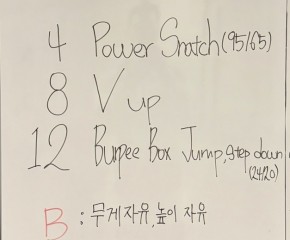 4 Power Snatch (95/65)
8 V up
12 Burpee Box Jump, Step down
(24/20)
B : 무게 자유, 높이 자유